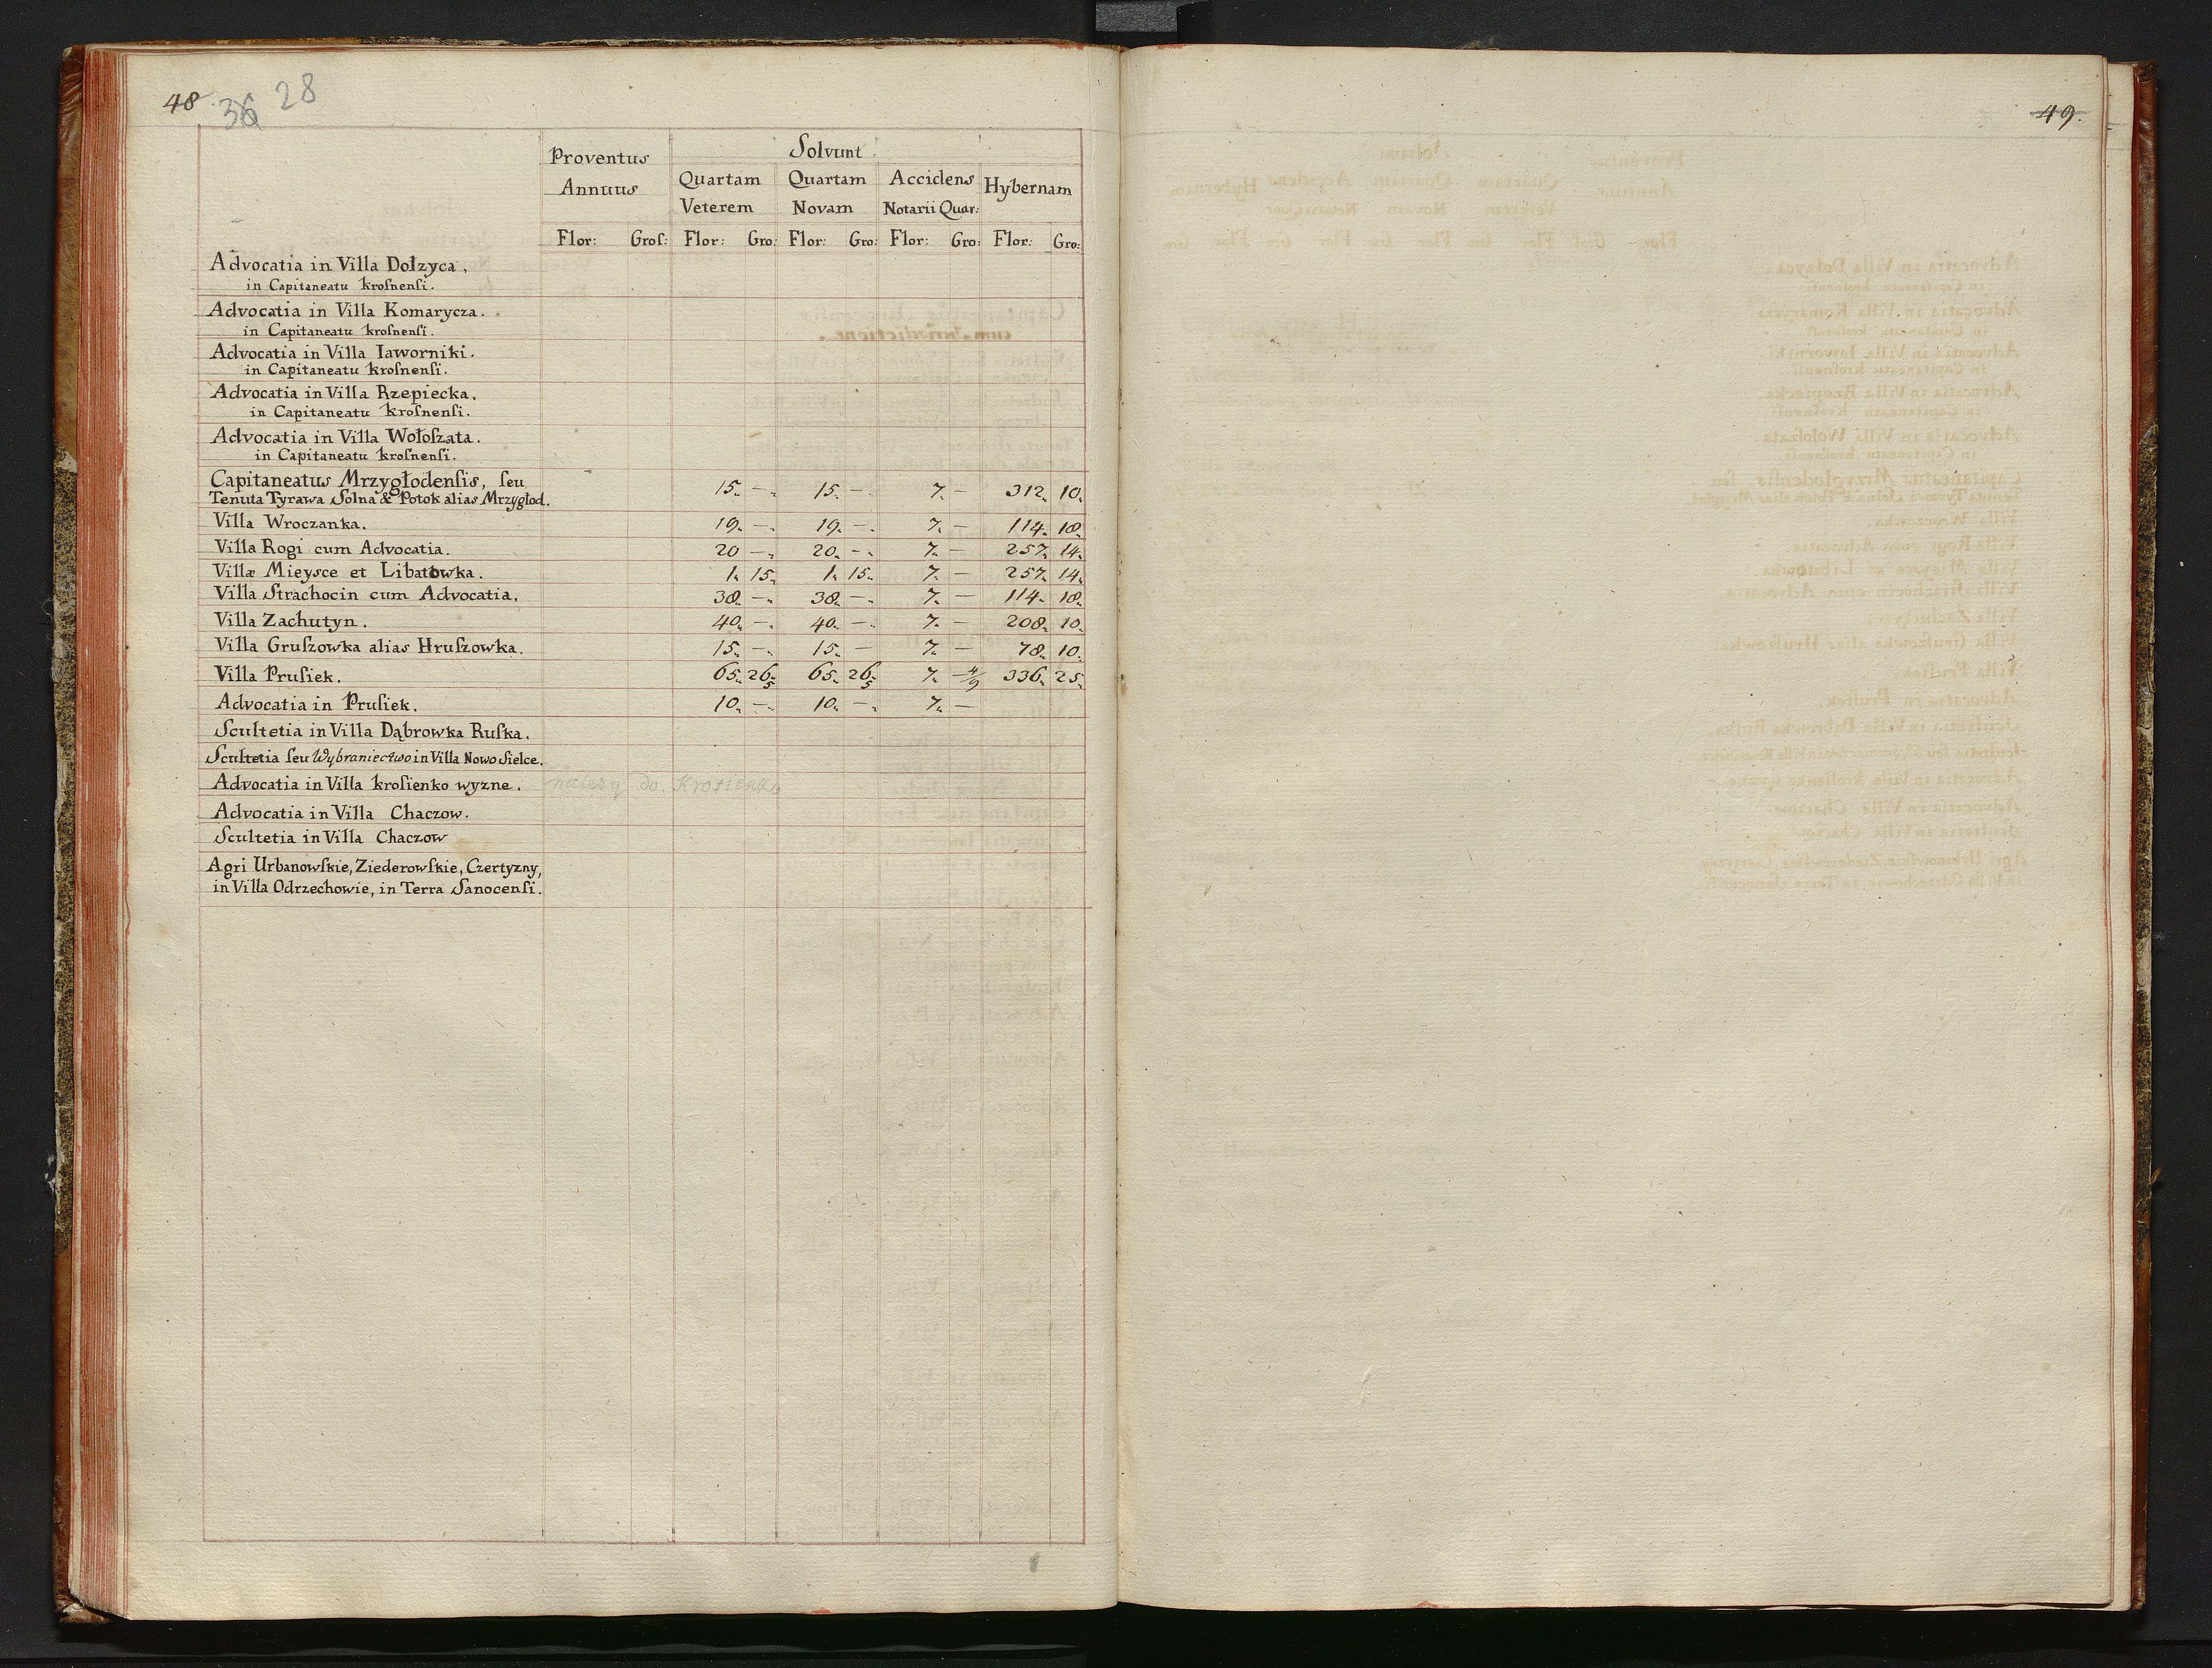 48 36 28
Proventus Annuus Solvunt
Quartam Veterem Quartam Novam Accidens Notarii Quar: Hybernam
Flor: Groſ: Flor: Gro: Flor: Gro: Flor: Gro: Flor: Gro:
Advocatia in Villa Dołzyca.
in Capitaneatu kroſnenſi.
Advocatia in Villa Komarycza.
in Capitaneatu kroſnenſi.
Advocatia in Villa Iaworniki.
in Capitaneatu kroſnenſi.
Advocatia in Villa Rzepiecka.
in Capitaneatu kroſnenſi.
Advocatia in Villa Wołoſzata.
in Capitaneatu kroſnenſi.
Capitaneatus Mrzygłodenſis, ſeu
Tenuta Tyrawa Solna & Potok alias Mrzygłod. 15. — 15. — 7. — 312. 10.
Villa Wroczanka. 19. — 19. — 7. — 114. 18.
Villa Rogi cum Advocatia. 20 — 20. — 7. — 257. 14.
Villæ Mieysce et Libatowka. 1. 15. 1. 15. 7. — 257. 14.
Villa Strachocin cum Advocatia. 38. — 38. — 7. — 114. 18.
Villa Zachutyn. 40. — 40. — 7. — 208. 10.
Villa Gruſzowka alias Hruſzowka. 15. — 15. — 7. — 78. 10.
Villa Pruſiek. 65. 26. 5 65. 26. 5 7. 4/9 336. 25.
Advocatia in Pruſiek. 10. — 10. — 7. —
Scultetia in Villa Dąbrowka Ruſka.
Scultetia ſeu Wybraniectwo in Villa Nowo Sielce.
Advocatia in Villa kroſienko wyzne. należy do Krosienka
Advocatia in Villa Chaczow.
Scultetia in Villa Chaczow
Agri Urbanowſkie, Ziederowſkie, Czertyzny,
in Villa Odrzechowie, in Terra Sanocenſi.
49.